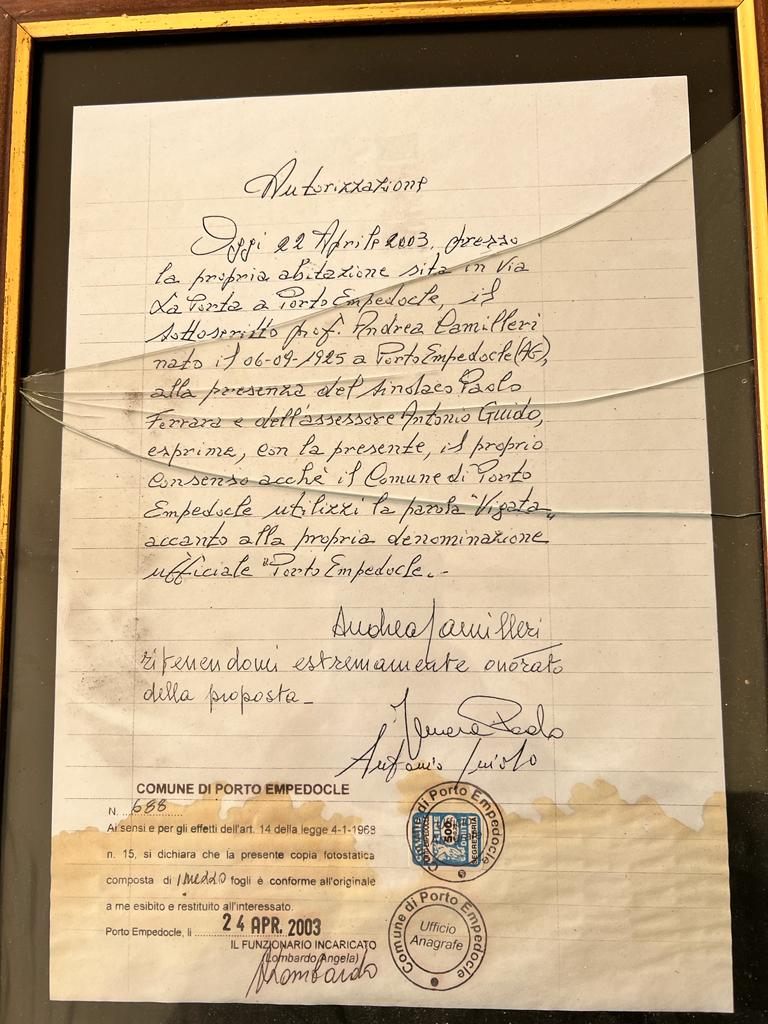 Autorizzazione
Oggi 22 Aprile 2003, presso
la propria abitazione sita in via
La Porta a Porto Empedocle, il
sottoscritto prof. Andrea Camilleri
nato il 06-09-1925 a Porto Empedocle (AG),
alla presenza del sindaco Paolo
Ferrara e dell'assessore Antonio Guido,
esprime, con la presente, il proprio
consenso acchè il Comune di Porto
Empedocle utilizzi la parola "Vigata"
accanto alla propria denominazione
ufficiale "Porto Empedocle.-
Andrea Camilleri
ritenendomi estremamente onorato
della proposta_
Ferrara Paolo
Antonio Guido
COMUNE DI PORTO EMPEDOCLE
N. 688
Ai sensi e per gli effetti dell'art. 14 della legge 4-1-1968
n. 15, si dichiara che la presente copia fotostatica
composta di 1 mezzo fogli è conforme all'originale
a me esibito e restituito all'interessato.
Porto Empedocle, li 24 APR. 2003
IL FUNZIONARIO INCARICATO
(Lombardo Angela)
ALombardo
Comune di Porto Empedocle
500
SEGRETERIA
Comune di Porto Empedocle
Ufficio
Anagrafe